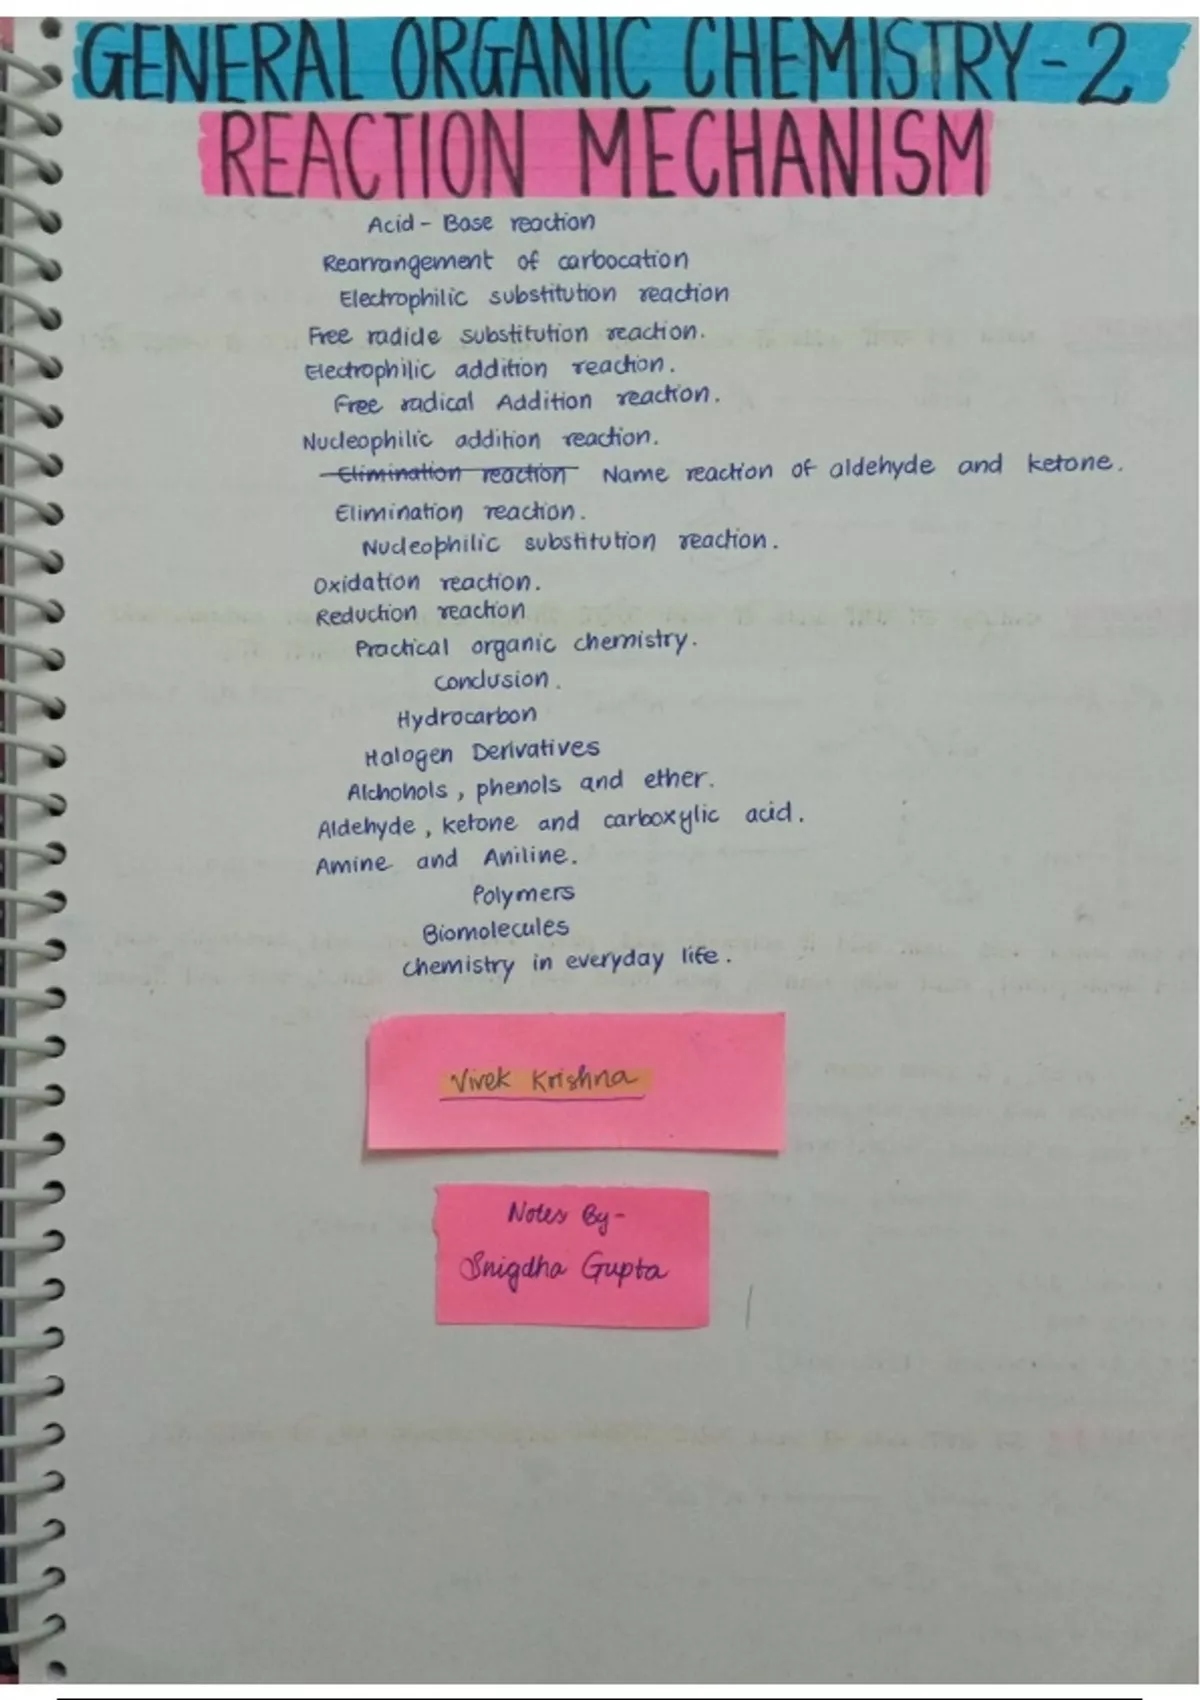 GENERAL ORGANIC CHEMISTRY-2
REACTION MECHANISM
Acid - Base reaction
Rearrangement of carbocation
Electrophilic substitution reaction
Free radicle substitution reaction.
Electrophilic addition reaction.
Free radical Addition reaction.
Nucleophilic addition reaction.
Elimination reaction Name reaction of aldehyde and ketone.
Elimination reaction.
Nucleophilic substitution reaction.
Oxidation reaction.
Reduction reaction
Practical organic chemistry.
Conclusion.
Hydrocarbon
Halogen Derivatives
Alchohols, phenols and ether.
Aldehyde, ketone and carboxylic acid.
Amine and Aniline.
Polymers
Biomolecules
Chemistry in everyday life.
Vivek Krishna
Notes By-
Snigdha Gupta